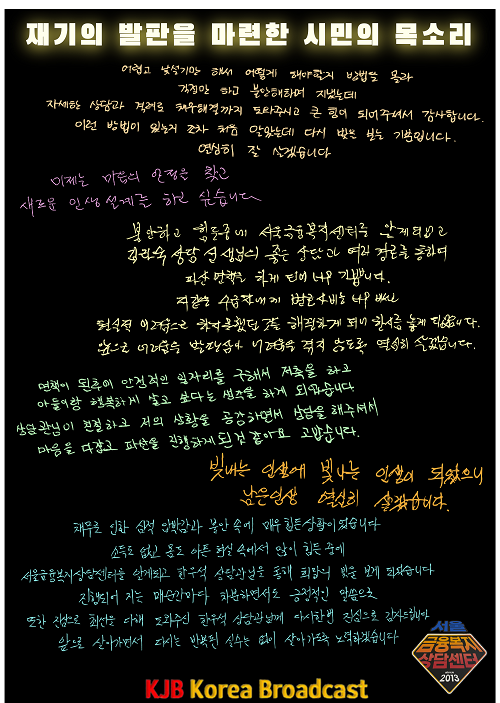 재기의 발판을 마련한 시민의 목소리
어렵고 낯설기만 해서 어떻게 해야할지 방법을 몰라
걱정만 하고 불안해하며 지냈는데
자세한 상담과 격려로 채무해결까지 도와주시고 큰 힘이 되어주셔서 감사합니다.
이런 방법이 있는지 조차 처음 알았는데 다시 빛을 보는 기분입니다.
열심히 잘 살겠습니다
이제는 마음의 안정을 찾고
새로운 인생 설계를 하고 싶습니다
불안하고 힘든중에 서울금융복지센터를 알게되었고
상담 선생님의 좋은 상담과 여러 경로를 통하여
파산면책을 하게 되어 너무 기쁩니다.
현실적 어려움으로 하지못했던 것을 해결하게 되어 한시름 놓게 되었습니다.
앞으로 어려움을 발판삼아 어려움을 겪지 않도록 열심히 살겠습니다.
면책이 된후에 안정적인 일자리를 구해서 저축을 하고
아들이랑 행복하게 살고 보다는 생각을 하게 되었습니다
상담관님이 친절하고 저의 상황을 공감하면서 상담을 해주셔서
마음을 다잡고 파산을 진행하게된것 같아요 고맙습니다.
빛나는 인생에 빛나는 인생이 되었으니
남은인생 열심히 살겠습니다.
채무로 인한 심적 압박감과 불안 속에 매우 힘든상황이었습니다
소득도 없고 몸도 아픈 현실 속에서 많이 힘든 중에
서울금융복지상담센터를 알게되고 한우석 상담관님을 통해 희망의 빛을 보게 되었습니다
진행되어 지는 매순간마다 하루하면서도 긍정적인 말씀으로
또한 진심으로 최선을 다해 도와주신 한우석 상담관님께 다시한번 진심으로 감사드립니다
앞으로 살아가면서 다시는 반복된 실수는 없이 살아가도록 노력하겠습니다
서울
금융복지
상담센터
2013
KJB Korea Broadcast